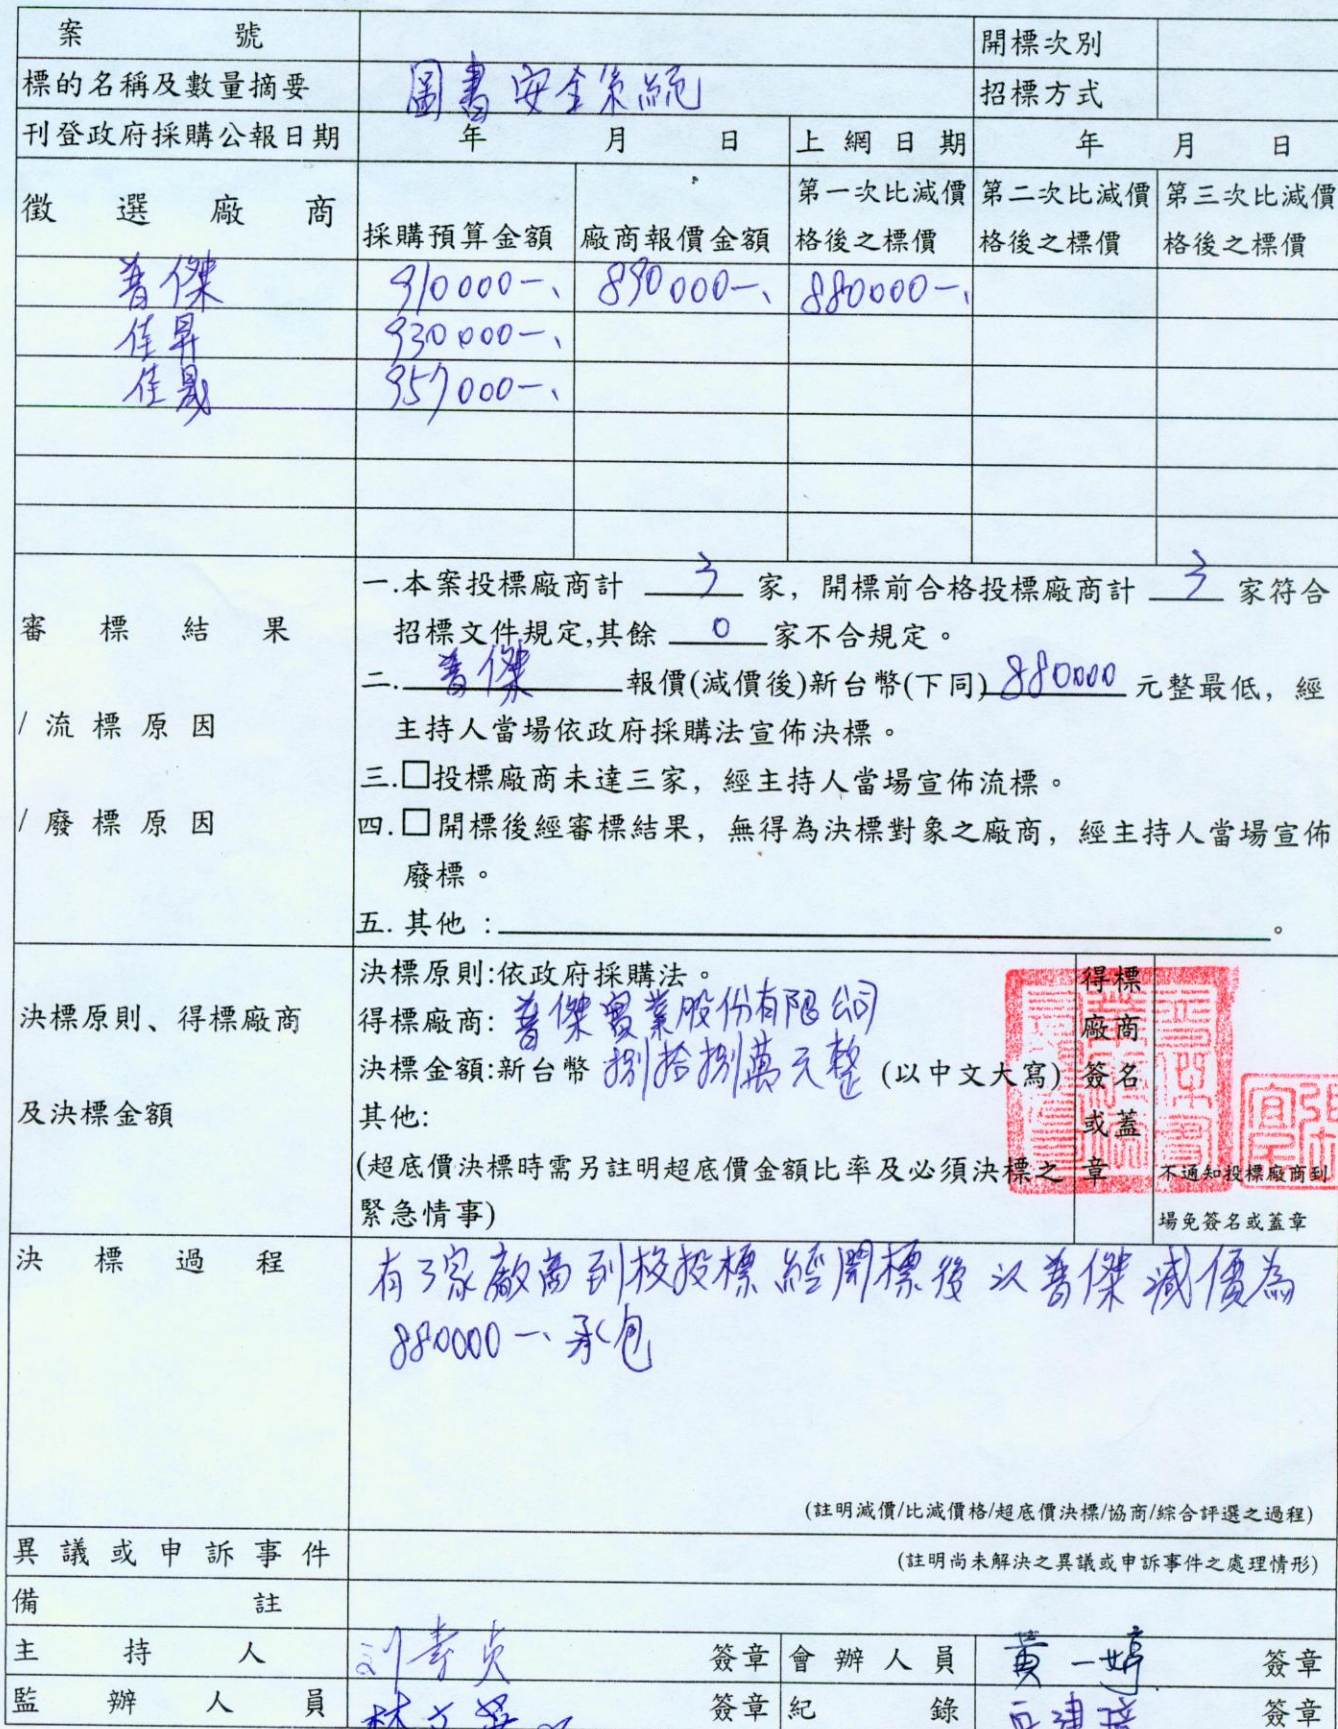 案 號 開標次別
標的名稱及數量摘要 圖書安全系統 招標方式
刊登政府採購公報日期 年 月 日 上網日期 年 月 日
徵選廠商 採購預算金額 廠商報價金額 第一次比減價格後之標價 第二次比減價格後之標價 第三次比減價格後之標價
普傑 910000-、 890000-、 880000-、
佳昇 930000-、
佳晟 957000-、
審標結果
/流標原因
/廢標原因
一.本案投標廠商計 3 家，開標前合格投標廠商計 3 家符合
招標文件規定,其餘 0 家不合規定。
二. 普傑 報價(減價後)新台幣(下同) 880000 元整最低，經
主持人當場依政府採購法宣佈決標。
三.□投標廠商未達三家，經主持人當場宣佈流標。
四.□開標後經審標結果，無得為決標對象之廠商，經主持人當場宣佈
廢標。
五. 其他：。
決標原則、得標廠商
及決標金額
決標原則:依政府採購法。
得標廠商: 普傑實業股份有限公司
決標金額:新台幣 捌拾捌萬元整 (以中文大寫)
其他:
(超底價決標時需另註明超底價金額比率及必須決標之
緊急情事)
得標
廠商
簽名
或蓋
章
不通知投標廠商到
場免簽名或蓋章
決標過程
有3家廠商到校投標經開標後以普傑減價為
880000-、承包
(註明減價/比減價格/超底價決標/協商/綜合評選之過程)
異議或申訴事件 (註明尚未解決之異議或申訴事件之處理情形)
備 註
主持人 劉壽貞 簽章 會辦人員 黃一婷 簽章
監辦人員 林文 簽章 紀錄 簽章